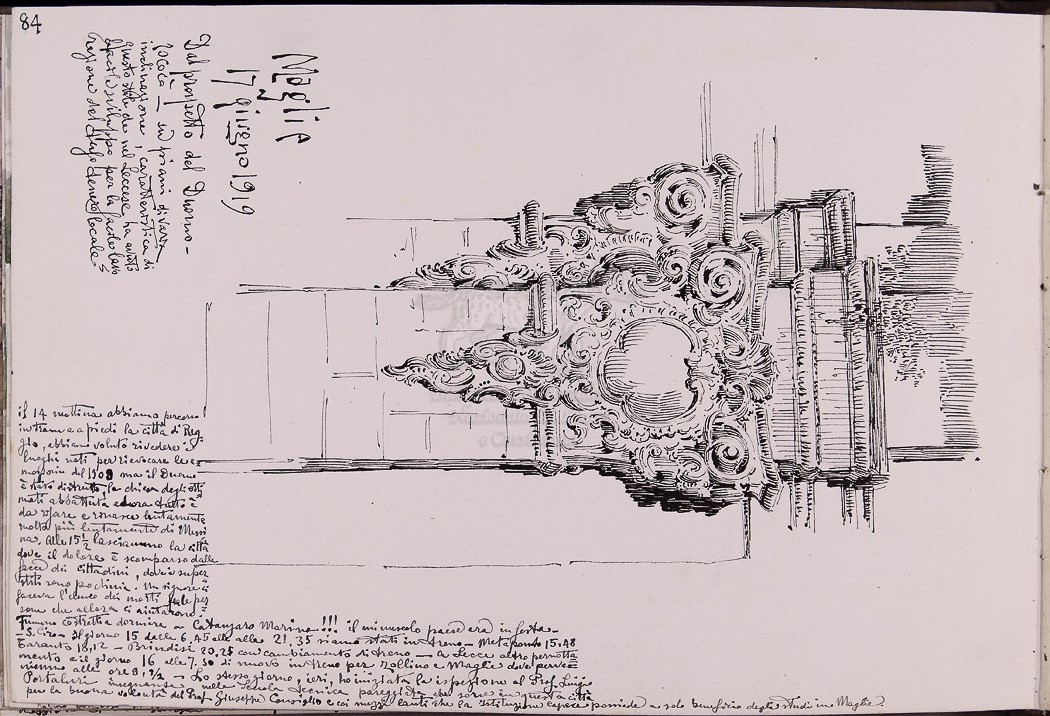 84
Maglie
17 giugno 1919
Dal prospetto del Duomo -
rococò - in piani diversi
inclinazione, caratteristica di
questo stile che nel Leccese ha avuto
facile sviluppo per la facile lavo
razione del tufo tenero locale.
il 14 mattina abbiamo percorso
in tram e a piedi la città di Reg
gio, abbiamo voluto rivedere i
luoghi noti per rievocare le me
morie del 1908 ma il Duomo
è stato distrutto, la chiesa degli Otti
mati abbattuta e ora tutto è
da rifare e rinasce lentamente
molto più lentamente di Messi
na. Alle 15½ lasciammo la città
dove il dolore è scomparso dalle
facce dei cittadini, dove i super
stiti sono pochini. Un signore ci
faceva l'elenco dei morti fra le per
sone che allora ci aiutarono.
Fummo costretti a dormire a Catanzaro Marina!!! il minuscolo paese era in festa -
- S. Ciro - Il giorno 15 dalle 6,45 alle 21.35 siamo stati in treno - Metaponto 15,48
Taranto 18,12 - Brindisi 20,25 con cambiamento di treno - A Lecce altro pernotta
mento e il giorno 16 alle 7.50 di nuovo in treno per Zollino e Maglie dove perve
nimmo alle ore 9,½ - Lo stesso giorno, ieri, ho iniziata la ispezione al Prof. Luigi
Portaluri insegnante nella Scuola Tecnica pareggiata che sorse in questa città
per la buona volontà del Prof Giuseppe Consiglio e coi mezzi che la Istituzione Capece possiede a solo beneficio degli studi in Maglie.